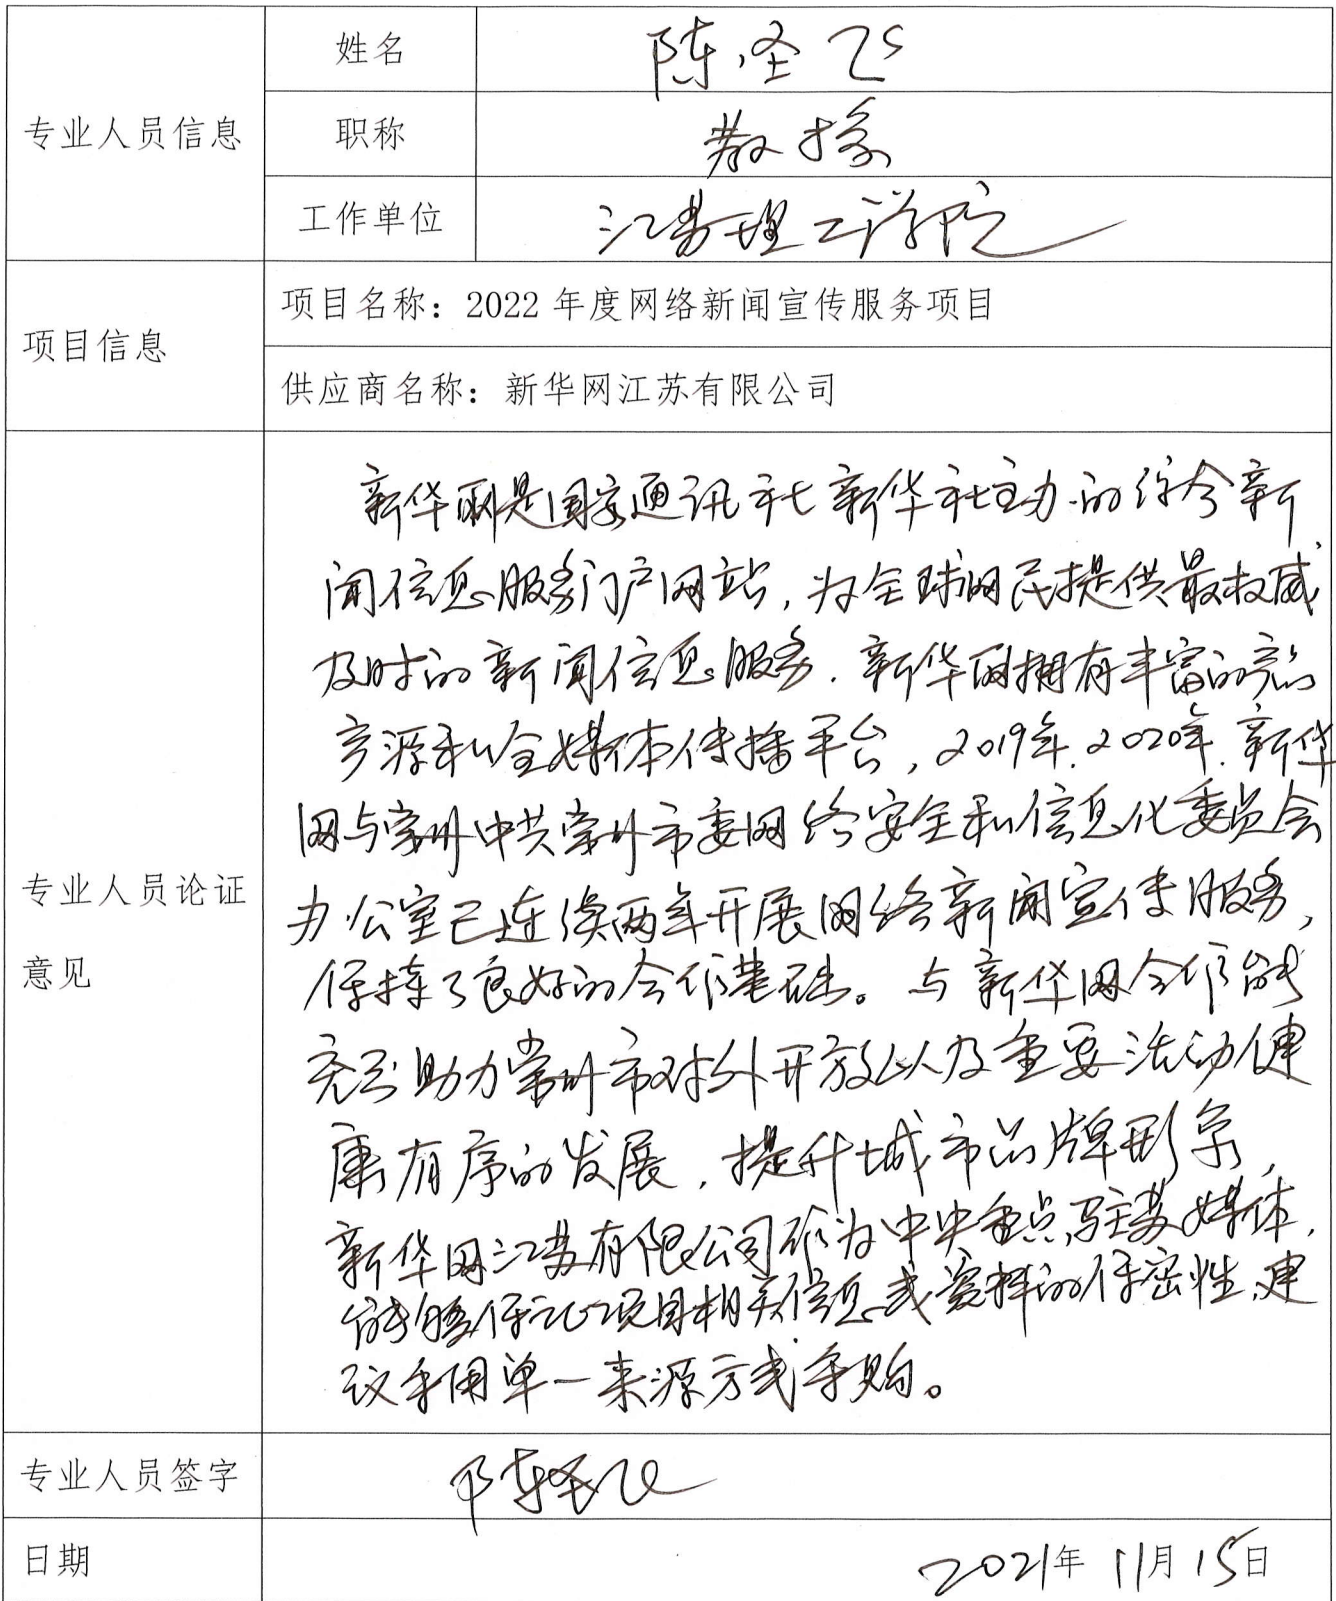 专业人员信息
姓名
陈圣飞
职称
教授
工作单位
江苏理工学院
项目信息
项目名称：2022 年度网络新闻宣传服务项目
供应商名称：新华网江苏有限公司
专业人员论证
意见
新华网是国家通讯社新华社主办的综合新
闻信息服务门户网站，为全球网民提供最权威
及时的新闻信息服务．新华网拥有丰富的产品
资源和全媒体传播平台，2019年、2020年，新华
网与常州中共常州市委网络安全和信息化委员会
办公室已连续两年开展网络新闻宣传服务，
保持了良好的合作基础。与新华网合作能
充分助力常州市对外开放以及重要活动健
康有序的发展，提升城市品牌形象，
新华网江苏有限公司作为中央重点驻苏媒体，
能够保证项目相关信息或资料的保密性，建
议采用单一来源方式采购。
专业人员签字
陈圣飞
日期
2021年 11月 15日